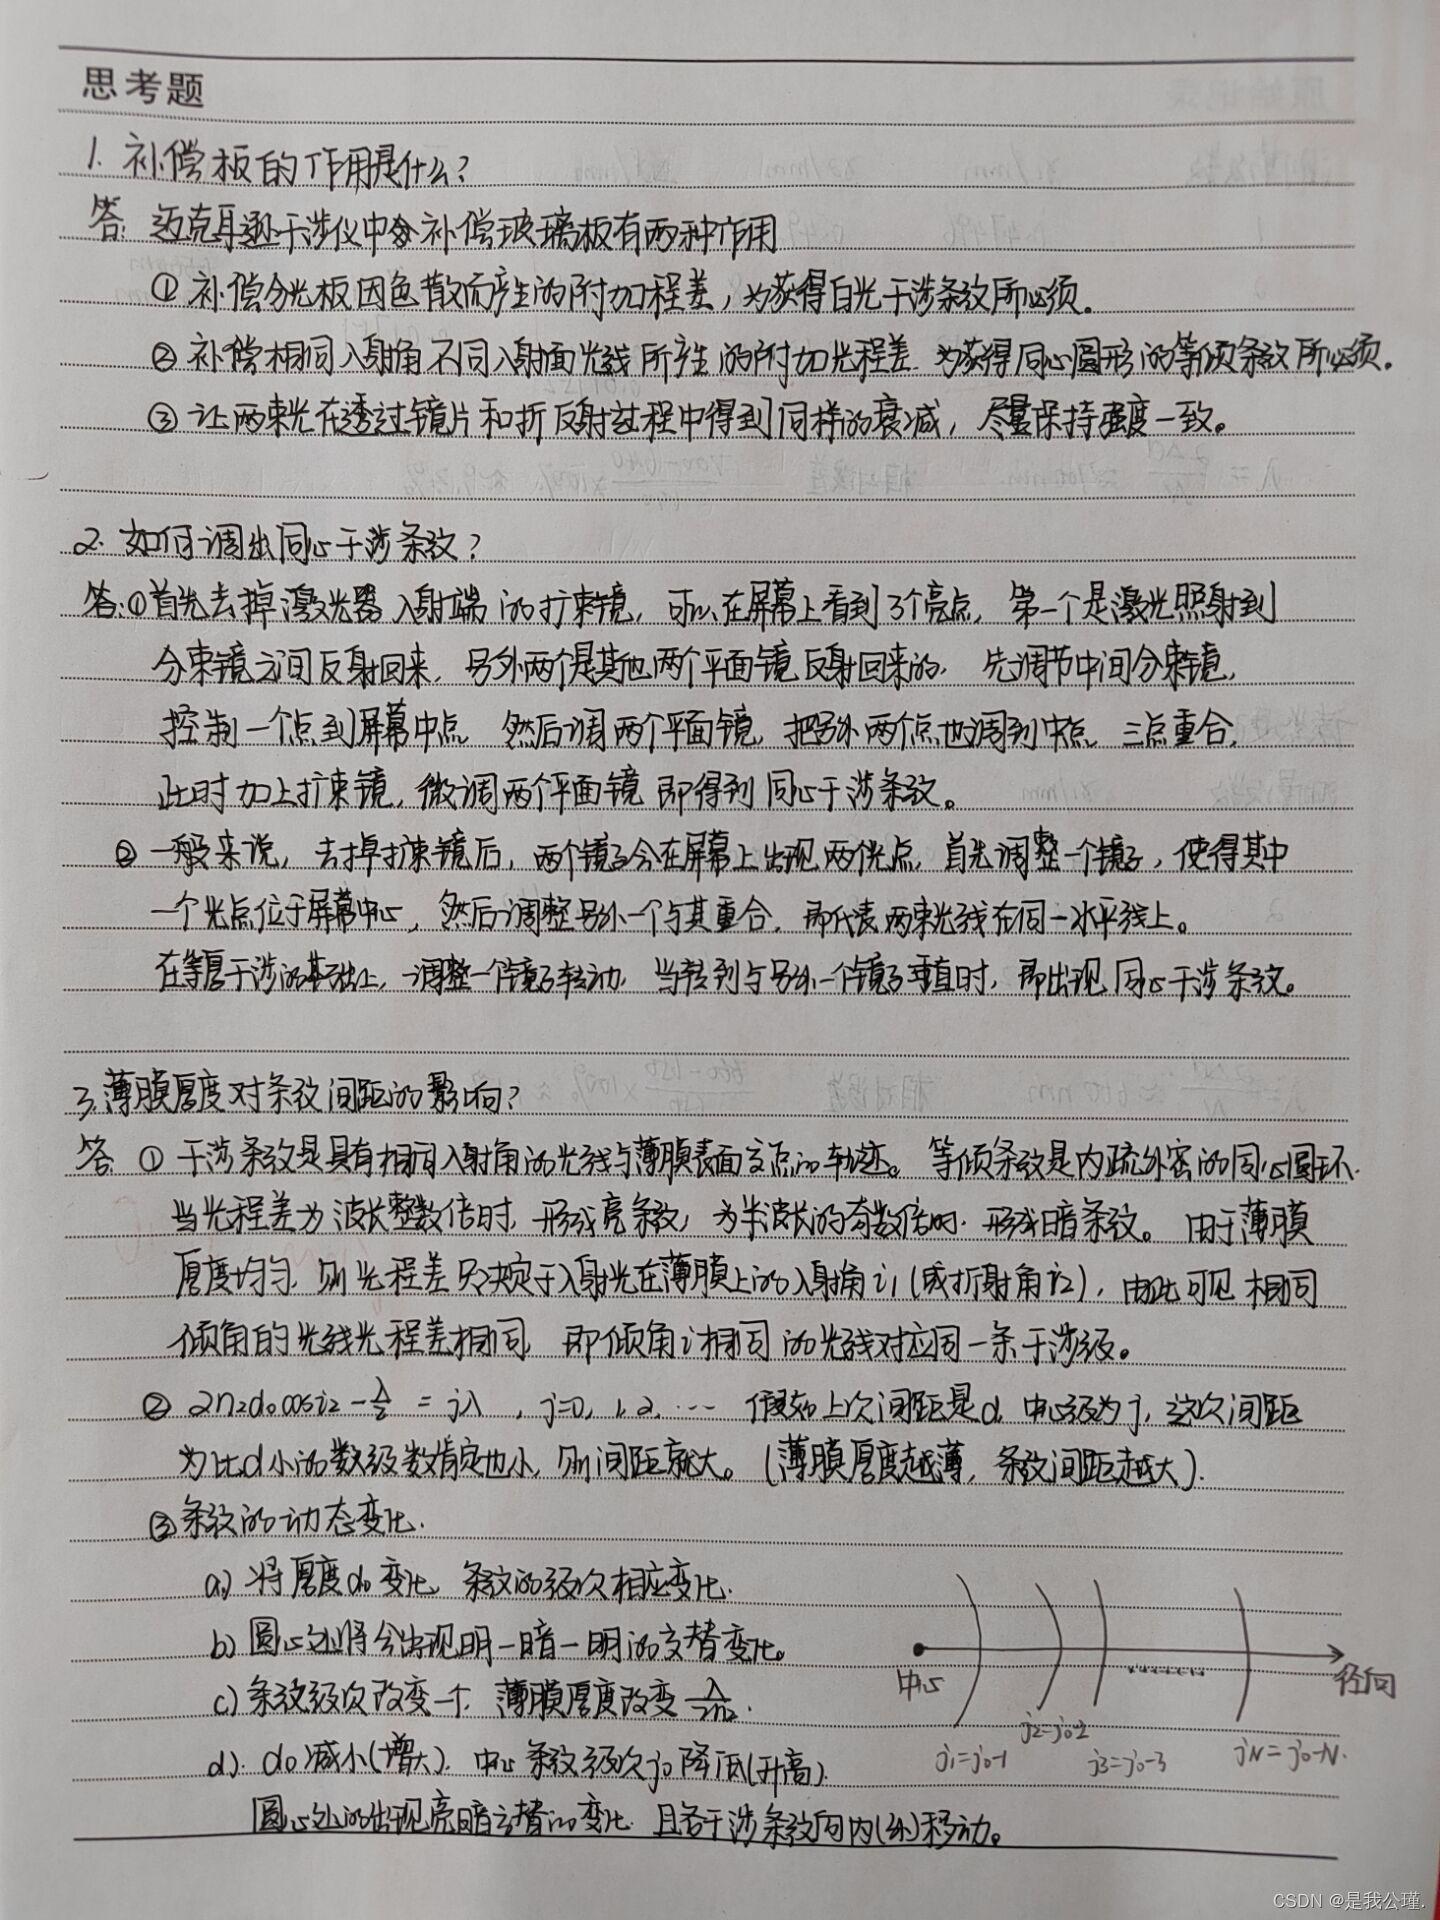 思考题
1. 补偿板的作用是什么?
答: 迈克耳逊干涉仪中 补偿玻璃板有两种作用
① 补偿分光板因色散而产生的附加程差,为获得白光干涉条纹所必须。
② 补偿相同入射角不同入射面光线所产生的附加光程差. 为获得同心圆形的等倾条纹所必须.
③ 让两束光在透过镜片和折反射过程中得到同样的衰减, 尽量保持强度一致。
2. 如何调出同心干涉条纹?
答:①首先去掉激光器入射端的扩束镜, 可以在屏幕上看到3个亮点, 第一个是激光照射到
分束镜之间反射回来, 另外两个是其他两个平面镜反射回来的, 先调节中间分束镜,
控制一个点到屏幕中点 然后调两个平面镜, 把另外两个点也调到中点 三点重合,
此时加上扩束镜, 微调两个平面镜 即得到同心干涉条纹。
② 一般来说, 去掉扩束镜后, 两个镜子会在屏幕上出现两个光点, 首先调整一个镜子, 使得其中
一个光点位于屏幕中心, 然后调整另外一个与其重合, 即代表两束光线在同一水平线上。
在等厚干涉的基础上, 调整一个镜子转动, 当转到与另外一个镜子垂直时, 即出现同心干涉条纹。
3.薄膜厚度对条纹间距的影响?
答 ① 干涉条纹是具有相同入射角的光线与薄膜表面交点的轨迹。等倾条纹是内疏外密的同心圆环.
当光程差为波长整数倍时, 形成亮条纹, 为半波长的奇数倍时. 形成暗条纹。由于薄膜
厚度均匀, 则光程差只决定于入射光在薄膜上的入射角i₁(或折射角i₂), 由此可见相同
倾角的光线光程差相同, 即倾角i相同的光线对应同一条干涉级。
② 2n₂d₀cosi₂-λ/2 = jλ , j=0, 1, 2, ··· 假如上次间距是d, 中心级为j, 这次间距
为比d小的数级数肯定也小, 则间距就大。(薄膜厚度越薄, 条纹间距越大).
③条纹的动态变化.
a) 将厚度d₀变化, 条纹的级次相应变化.
b) 圆心处将会出现明一暗一明的交替变化。
中心
径向
c) 条纹级次改变一个, 薄膜厚度改变λ/2n₂.
j₁=j₀-1
j₂=j₀-2
j₃=j₀-3
jN=j₀-N.
d). d₀减小(增大), 中心条纹级次j₀降低(升高).
圆心处的出现亮暗交替的变化, 且各干涉条纹向内(外)移动。
CSDN @是我公瑾.